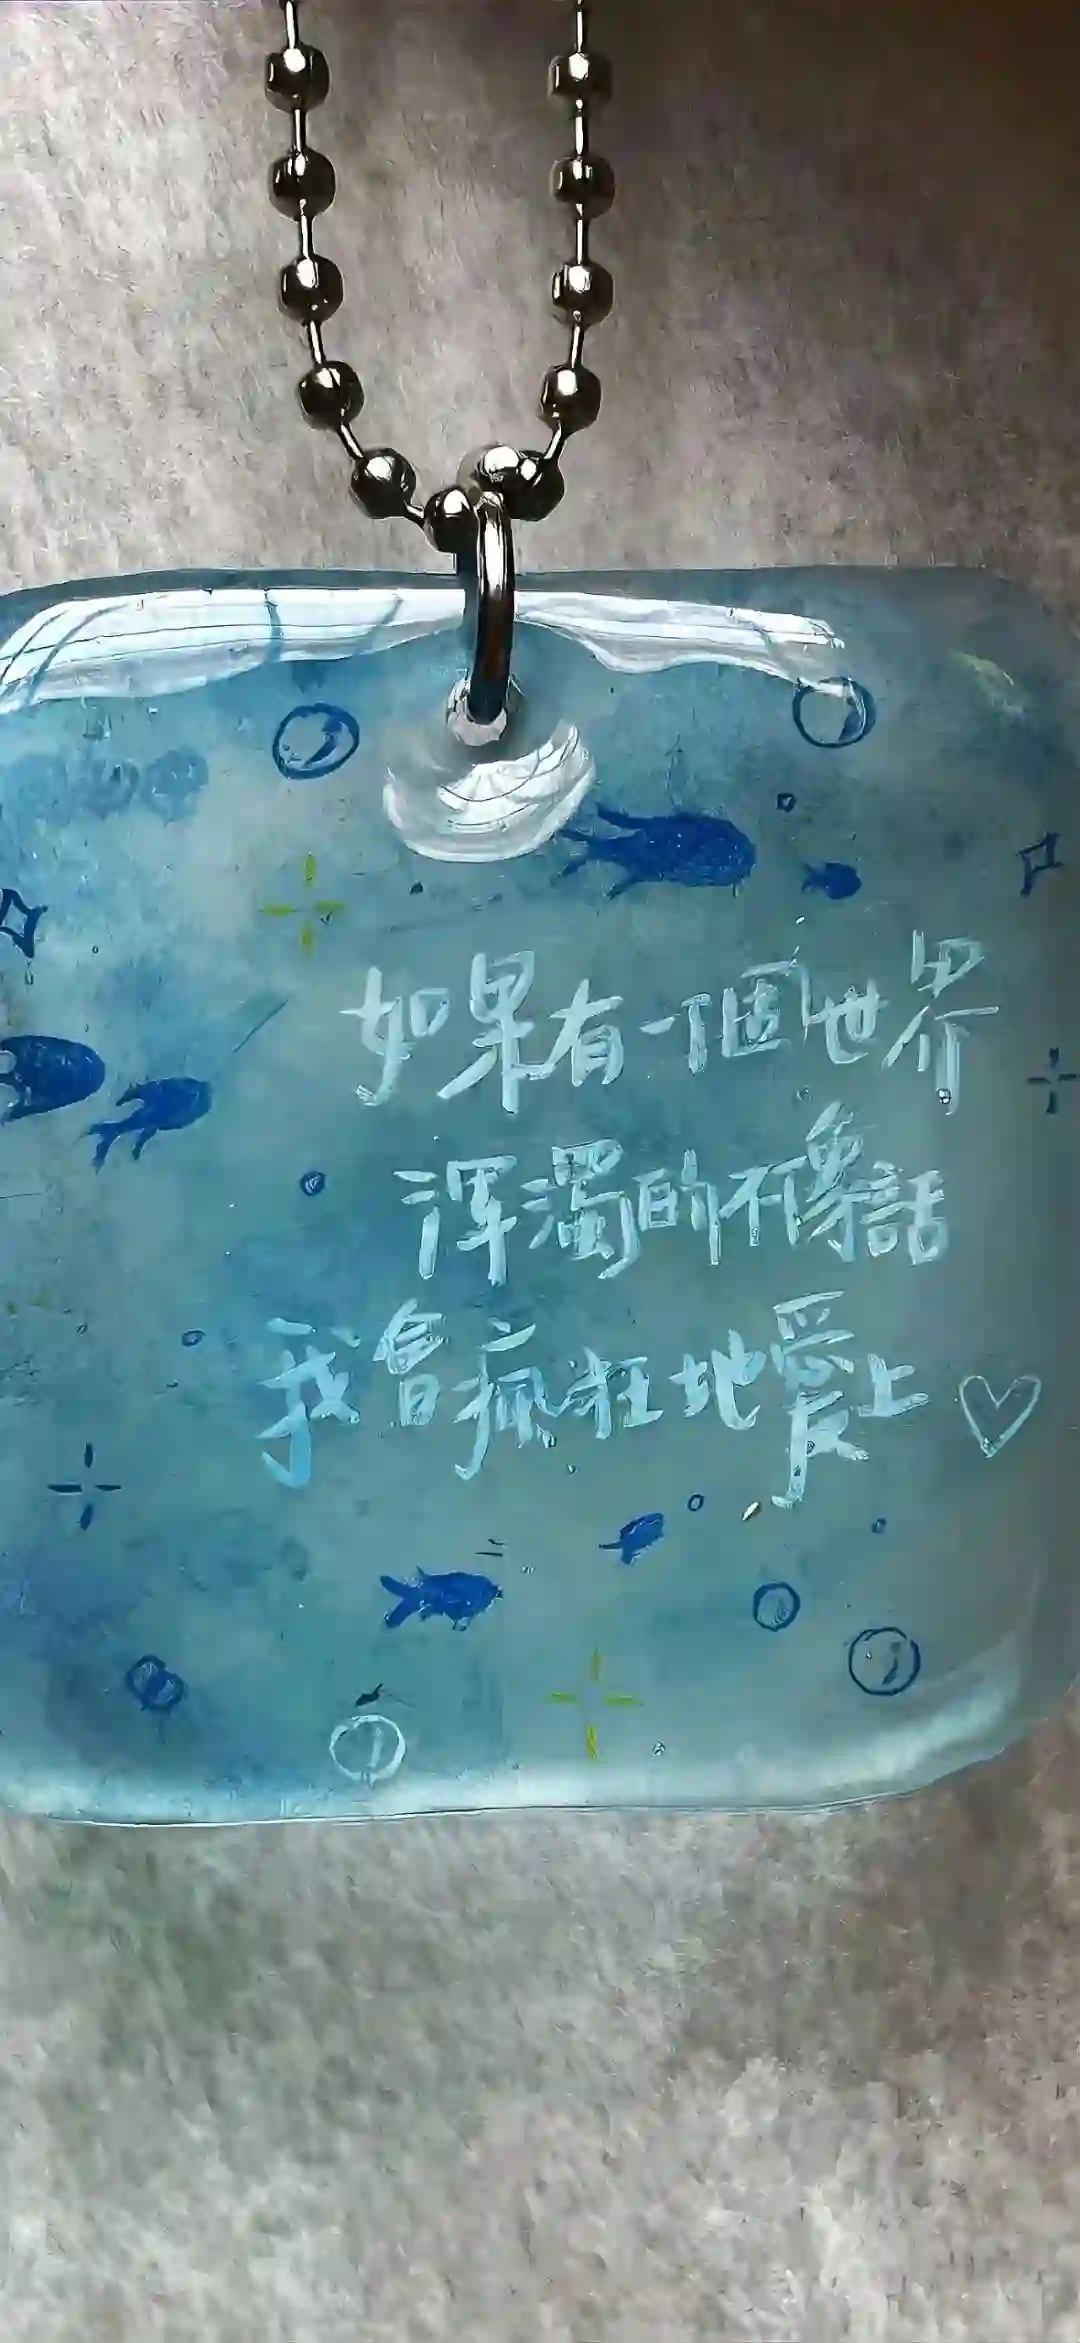 如果有一個世界
浑濁的不像話
我會瘋狂地愛上